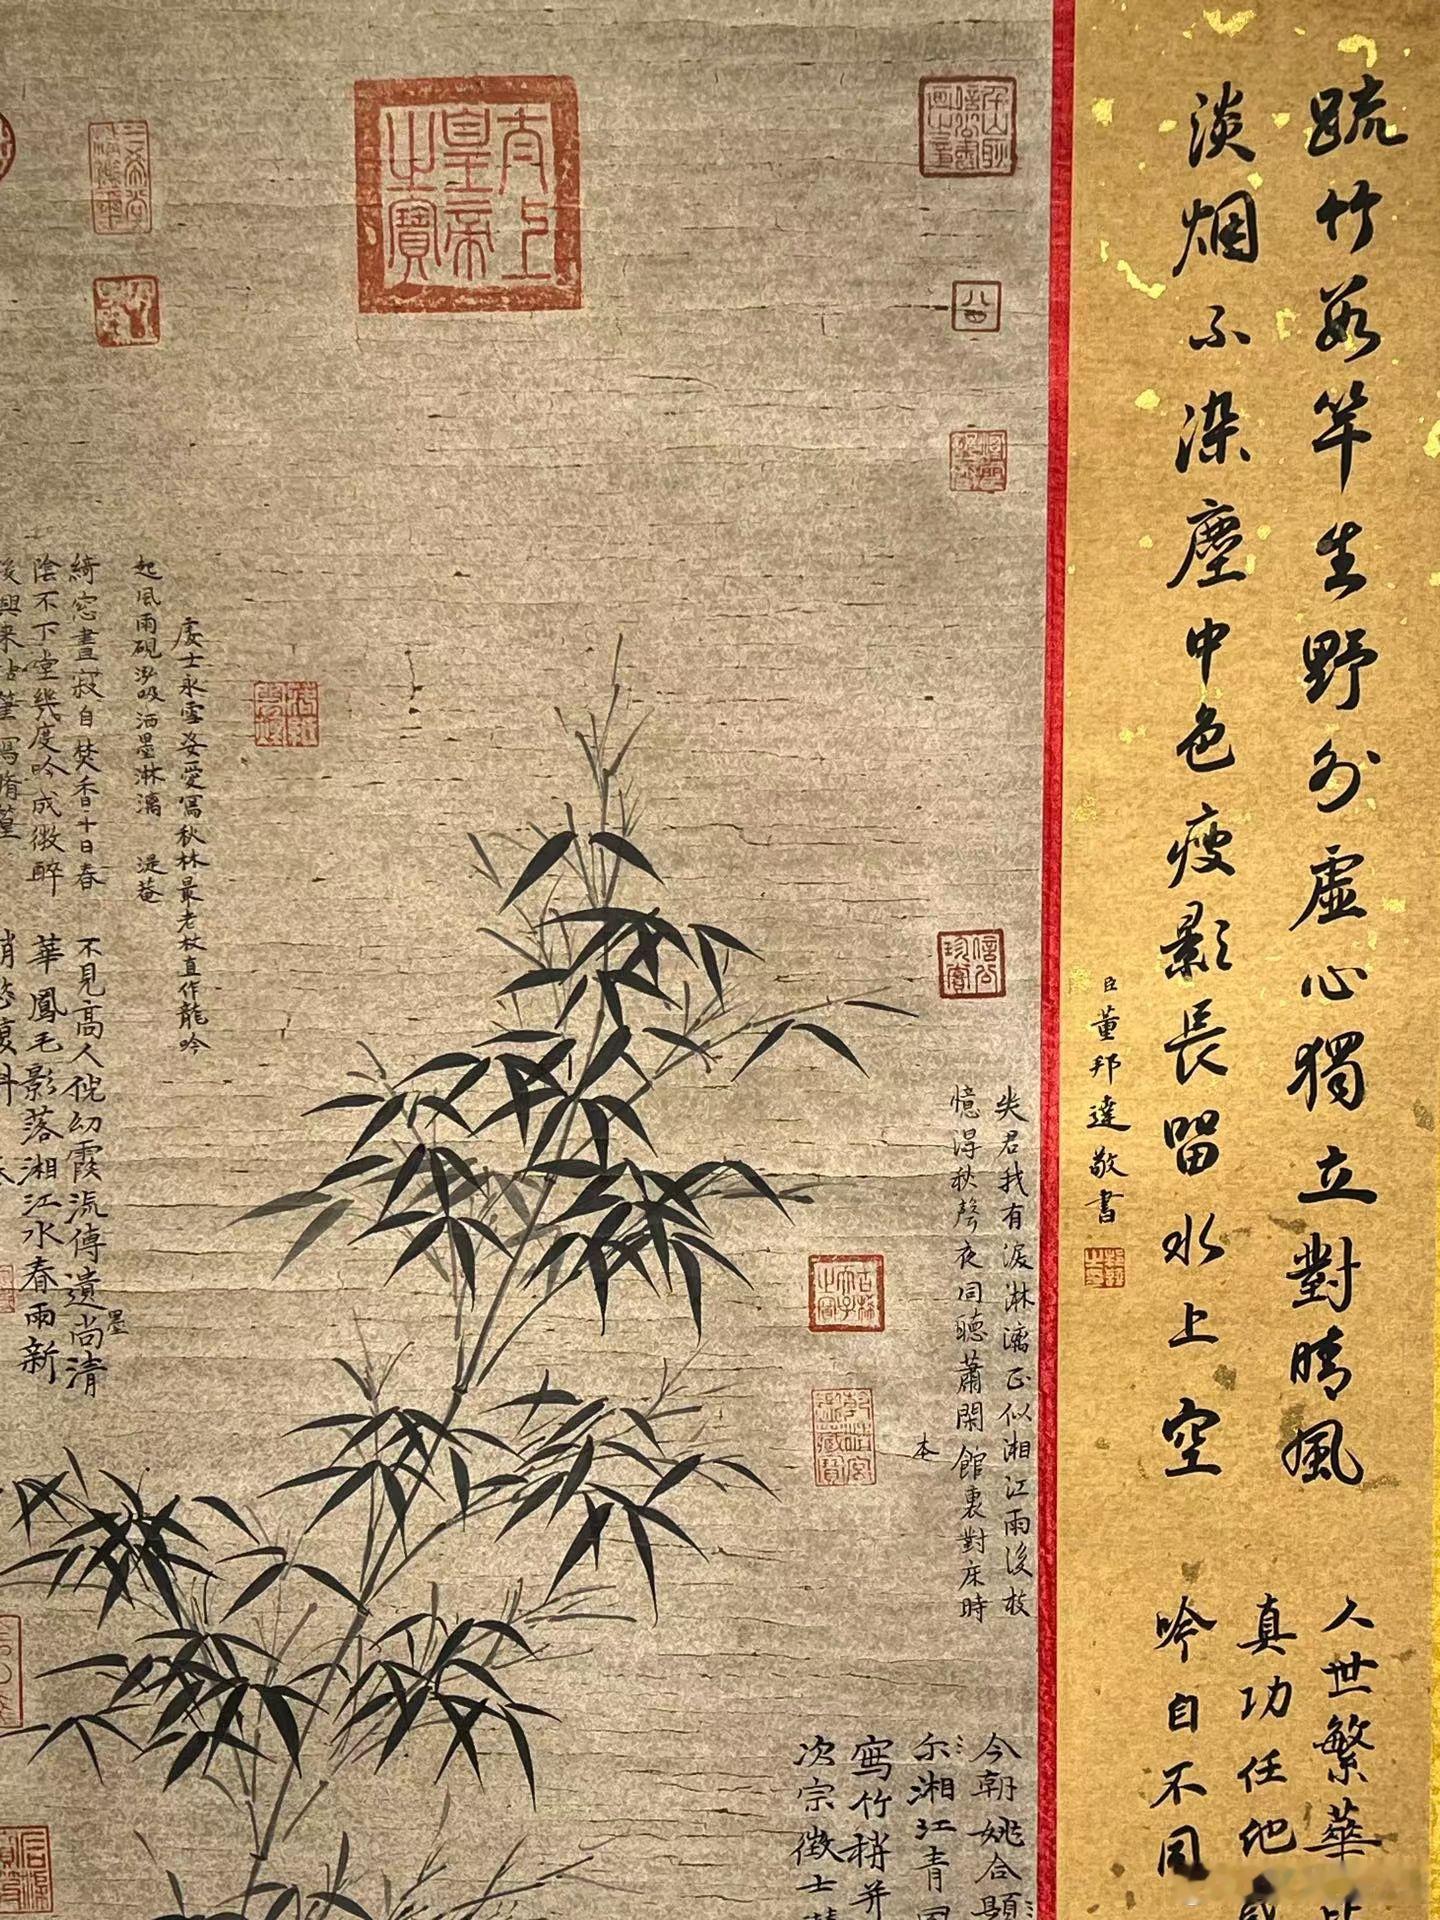 疏竹數竿生野外虛心獨立對晴風
淡烟不染塵中色瘦影長留水上空
臣董邦達敬書
人世繁華
真功任他
吟自不同
失君我有淚淋漓正似湘江雨後枝
憶得秋聲夜同聽蕭閑館裏對床時
本
今朝姚合題
尔湘江青
寫竹稍并
次宗徵士
太上皇帝之寶
信公珍賞
八函
三希堂精鑑璽
宜子孫
乾清宮鑑藏寶
處士永雪姿愛寫秋林最老枝直作龍吟
起風雨硯泓吸洒墨淋漓 湜菴
綺窓晝寂自焚香十日春
陰不下堂幾度吟成微醉
後興來拈筆寫脩篁
不見高人倪幼霞流傳遺尚清
墨
華鳳毛影落湘江水春雨新